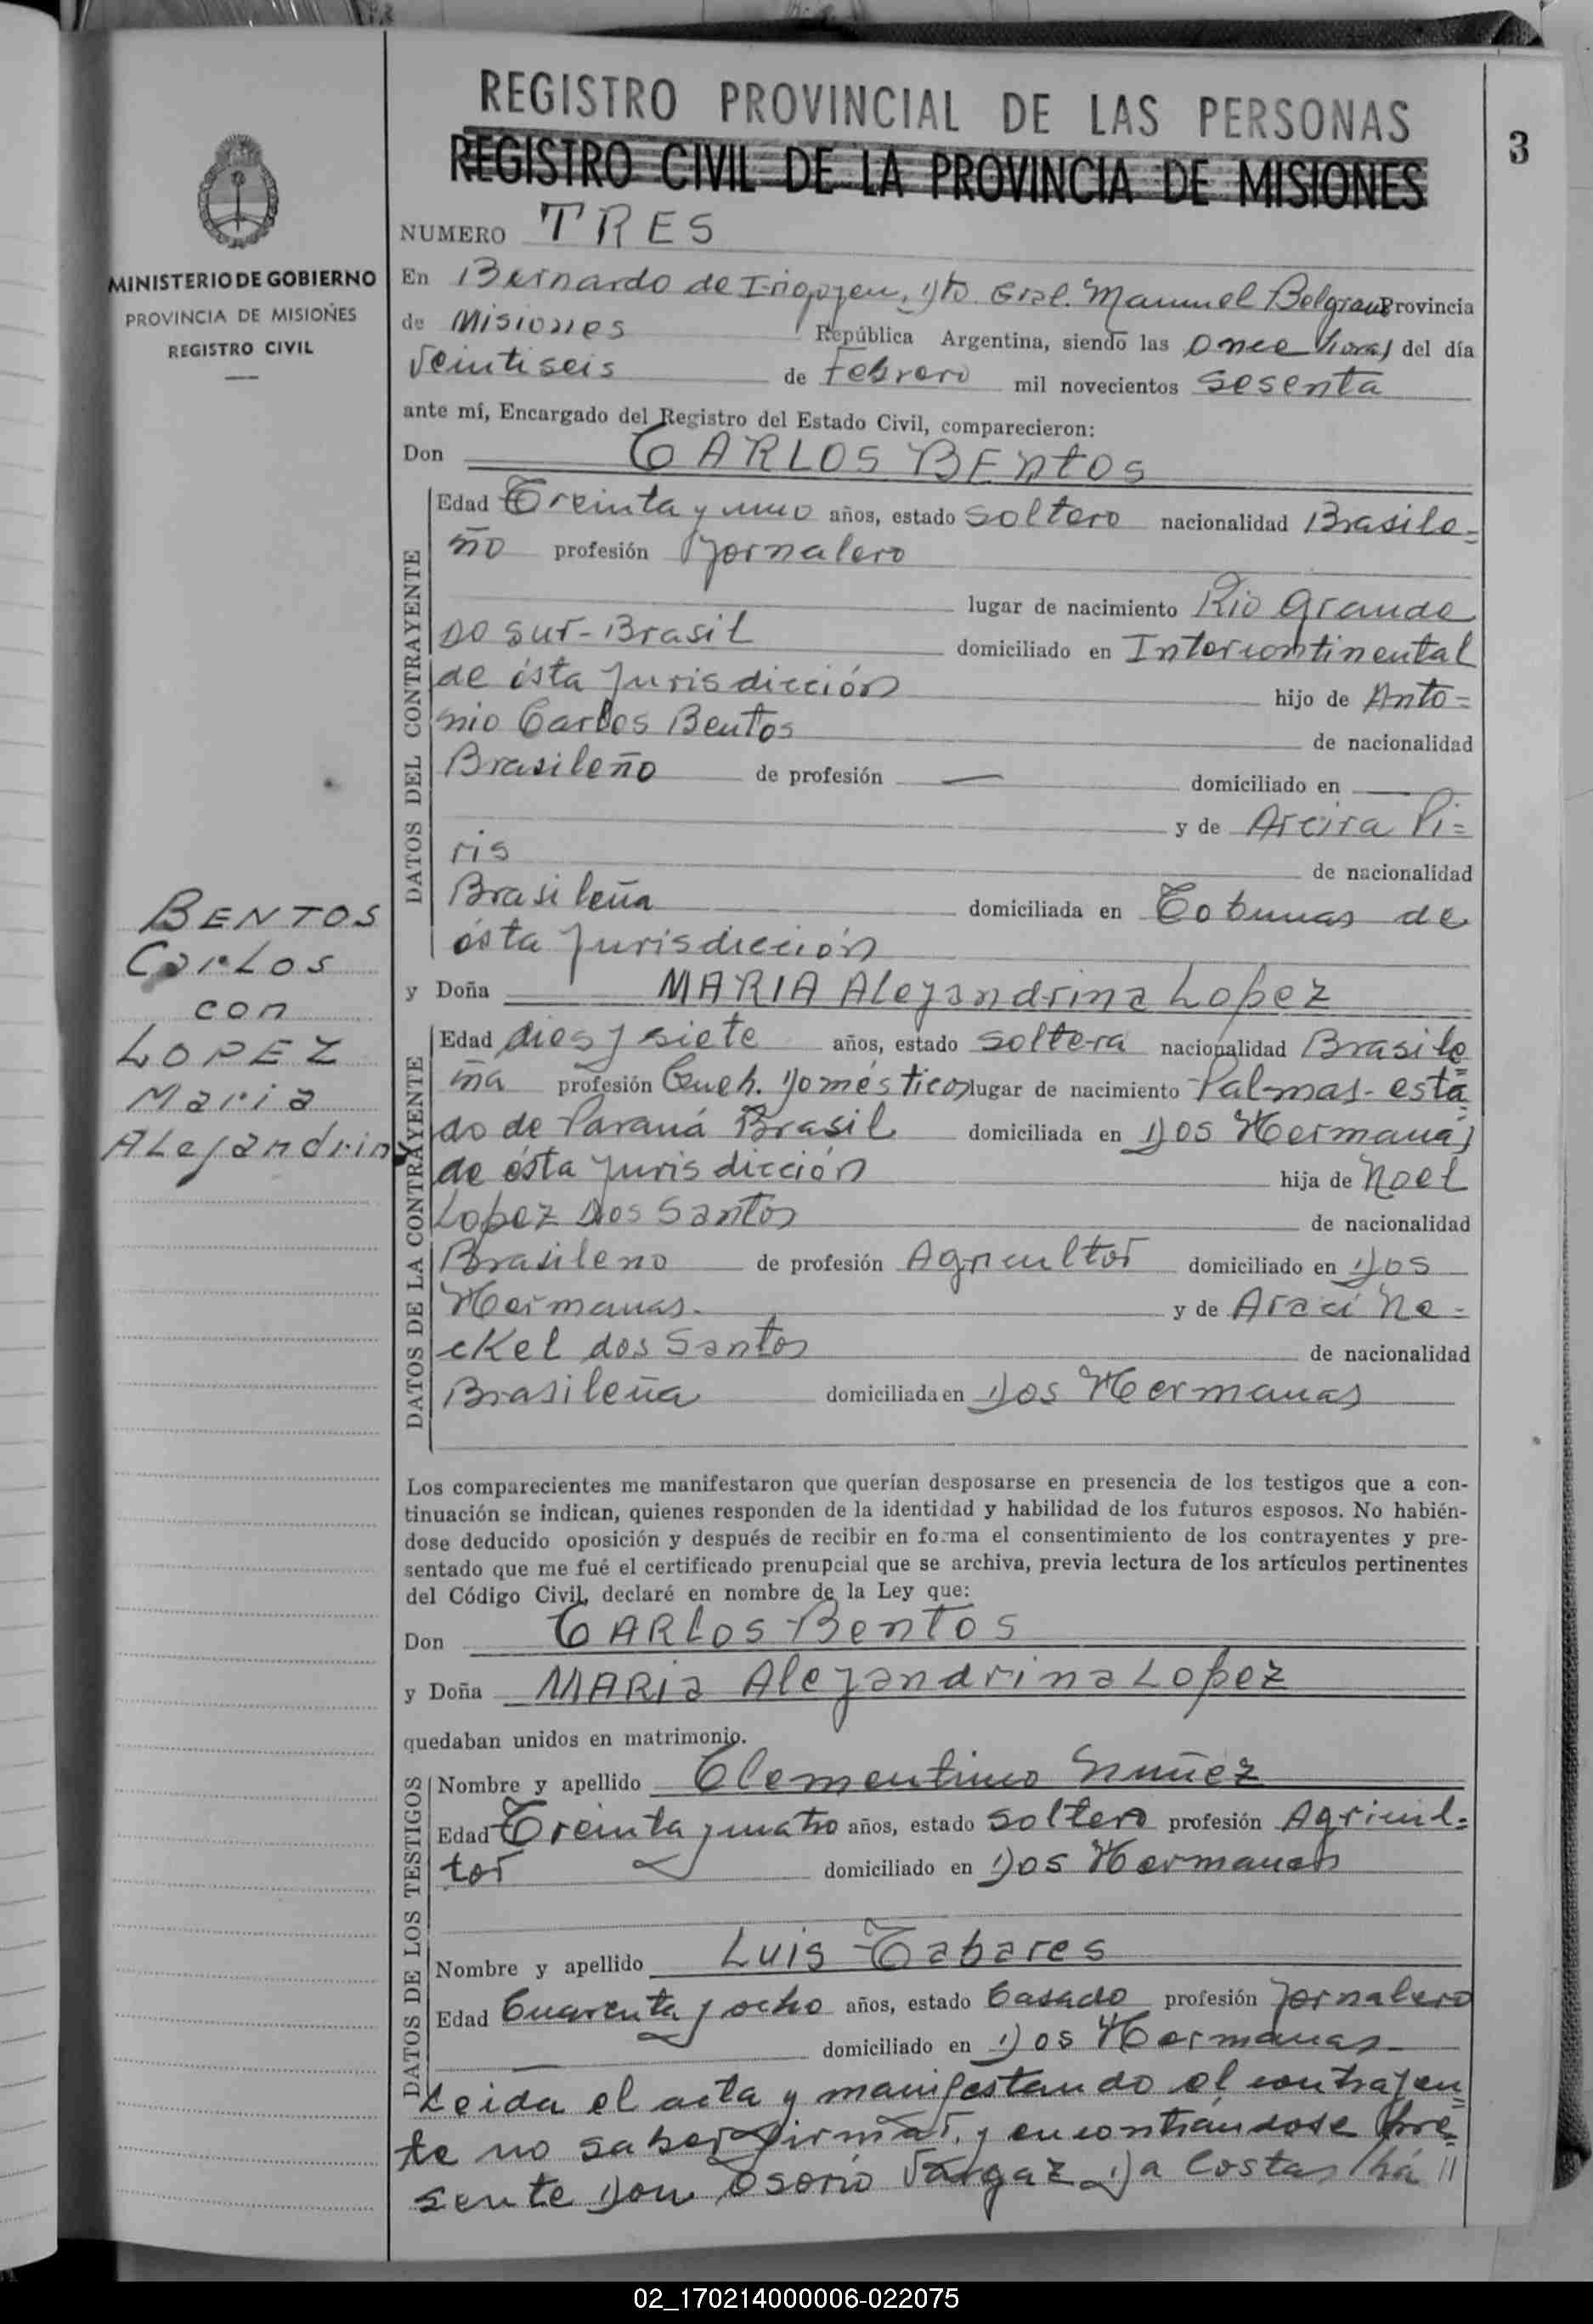 REGISTRO PROVINCIAL DE LAS PERSONAS
REGISTRO CIVIL DE LA PROVINCIA DE MISIONES
3
MINISTERIO DE GOBIERNO
PROVINCIA DE MISIONES
REGISTRO CIVIL
NUMERO TRES
En Bernardo de Irigoyen, Dto. Gral. Manuel Belgrano Provincia
de Misiones República Argentina, siendo las Once horas del día
Veintiseis de Febrero mil novecientos sesenta
ante mí, Encargado del Registro del Estado Civil, comparecieron:
Don CARLOS BENtOS
DATOS DEL CONTRAYENTE
Edad Treinta y uno años, estado soltero nacionalidad Brasile=
ño profesión Jornalero
lugar de nacimiento Rio Grande
Do sur-Brasil domiciliado en Intercontinental
de ésta Jurisdicción hijo de Anto=
nio Carlos Bentos de nacionalidad
Brasileño de profesión — domiciliado en —
y de Arcira Pi=
ris de nacionalidad
Brasileña domiciliada en Tobunas de
ésta Jurisdicción
BENTOS
Carlos
con
LOPEZ
Maria
ALejandrina
y Doña MARIA ALejandrina Lopez
DATOS DE LA CONTRAYENTE
Edad dies y siete años, estado soltera nacionalidad Brasile=
ña profesión Queh. Domésticos lugar de nacimiento Palmas-esta=
do de Paraná Brasil domiciliada en Dos Hermanas
de ésta Jurisdicción hija de Noel
Lopez Dos Santos de nacionalidad
Brasileno de profesión Agricultor domiciliado en Dos
Hermanas. y de Araci Ne=
cKel dos Santos de nacionalidad
Brasileña domiciliada en Dos Hermanas
Los comparecientes me manifestaron que querían desposarse en presencia de los testigos que a con-
tinuación se indican, quienes responden de la identidad y habilidad de los futuros esposos. No habién-
dose deducido oposición y después de recibir en forma el consentimiento de los contrayentes y pre-
sentado que me fué el certificado prenupcial que se archiva, previa lectura de los artículos pertinentes
del Código Civil, declaré en nombre de la Ley que:
Don CARLOS Bentos
y Doña MARIa Alejandrina Lopez
quedaban unidos en matrimonio.
DATOS DE LOS TESTIGOS
Nombre y apellido Clementino Nuñez
Edad Treinta y cuatro años, estado soltero profesión Agricul=
tor domiciliado en Dos Hermanas
Nombre y apellido Luis Tabares
Edad Cuarenta y ocho años, estado Casado profesión Jornalero
domiciliado en Dos Hermanas-
Leida el acta y manifestando el contrayen=
te no saber firmar, y encontrándose pre=
sente Don Osorio Vargaz Da Costa, há //
02_170214000006-022075